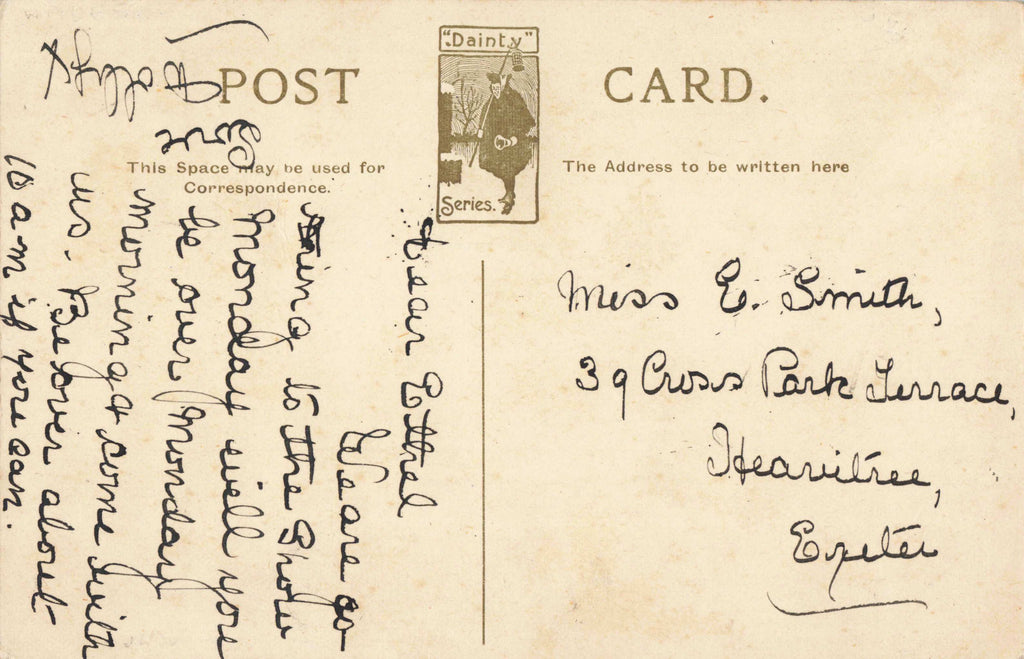 "Dainty"
Series.
POST CARD.
This Space may be used for
Correspondence.
The Address to be written here
Dear Ethel
We are go
ing to the Show
Monday will you
be over Monday
morning & come with
us. Be over about
10 a-m if you can.
Miss E. Smith,
39 Cross Park Terrace,
Heavitree,
Exeter